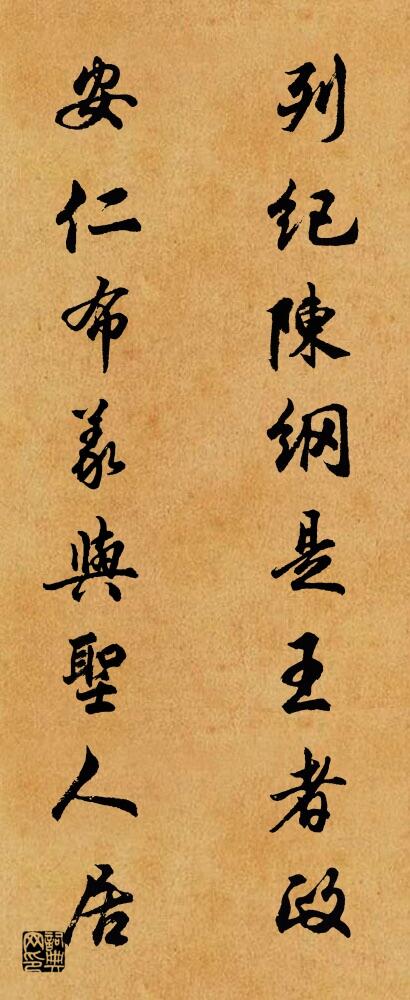 列纪陳綱是王者政
安仁布義與聖人居
詞典网印